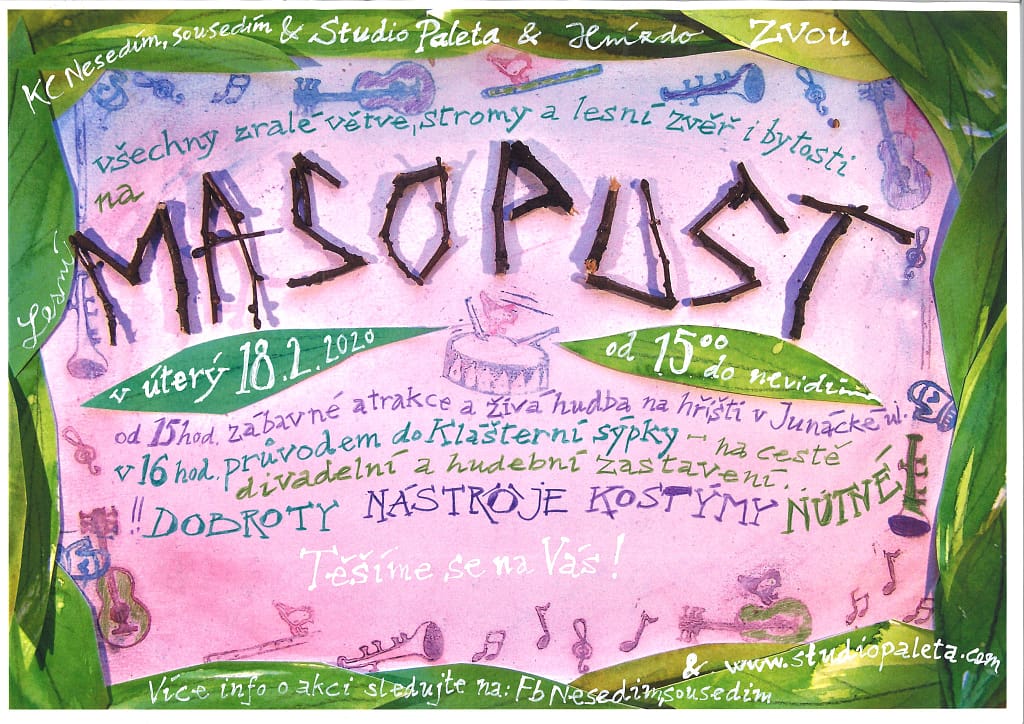 KC Nesedím, sousedím & Studio Paleta & Hnízdo Zvou
všechny zralé větve, stromy a lesní zvěř i bytosti
na
Lesní
MASOPUST
v úterý 18.2.2020
od 15⁰⁰ do nevidim
od 15 hod. zábavné atrakce a živá hudba na hřišti v Junácké ul.
v 16 hod. průvodem do Klášterní sýpky – na cestě
divadelní a hudební zastavení.
!! DOBROTY NÁSTROJE KOSTÝMY NUTNÉ
Těšíme se na Vás!
& www.studiopaleta.com
Více info o akci sledujte na: Fb Nesedim,sousedim